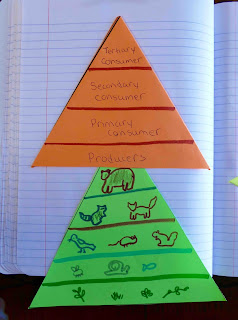 Tertiary
Consumer
Secondary
consumer
Primary
Consumer
Producers